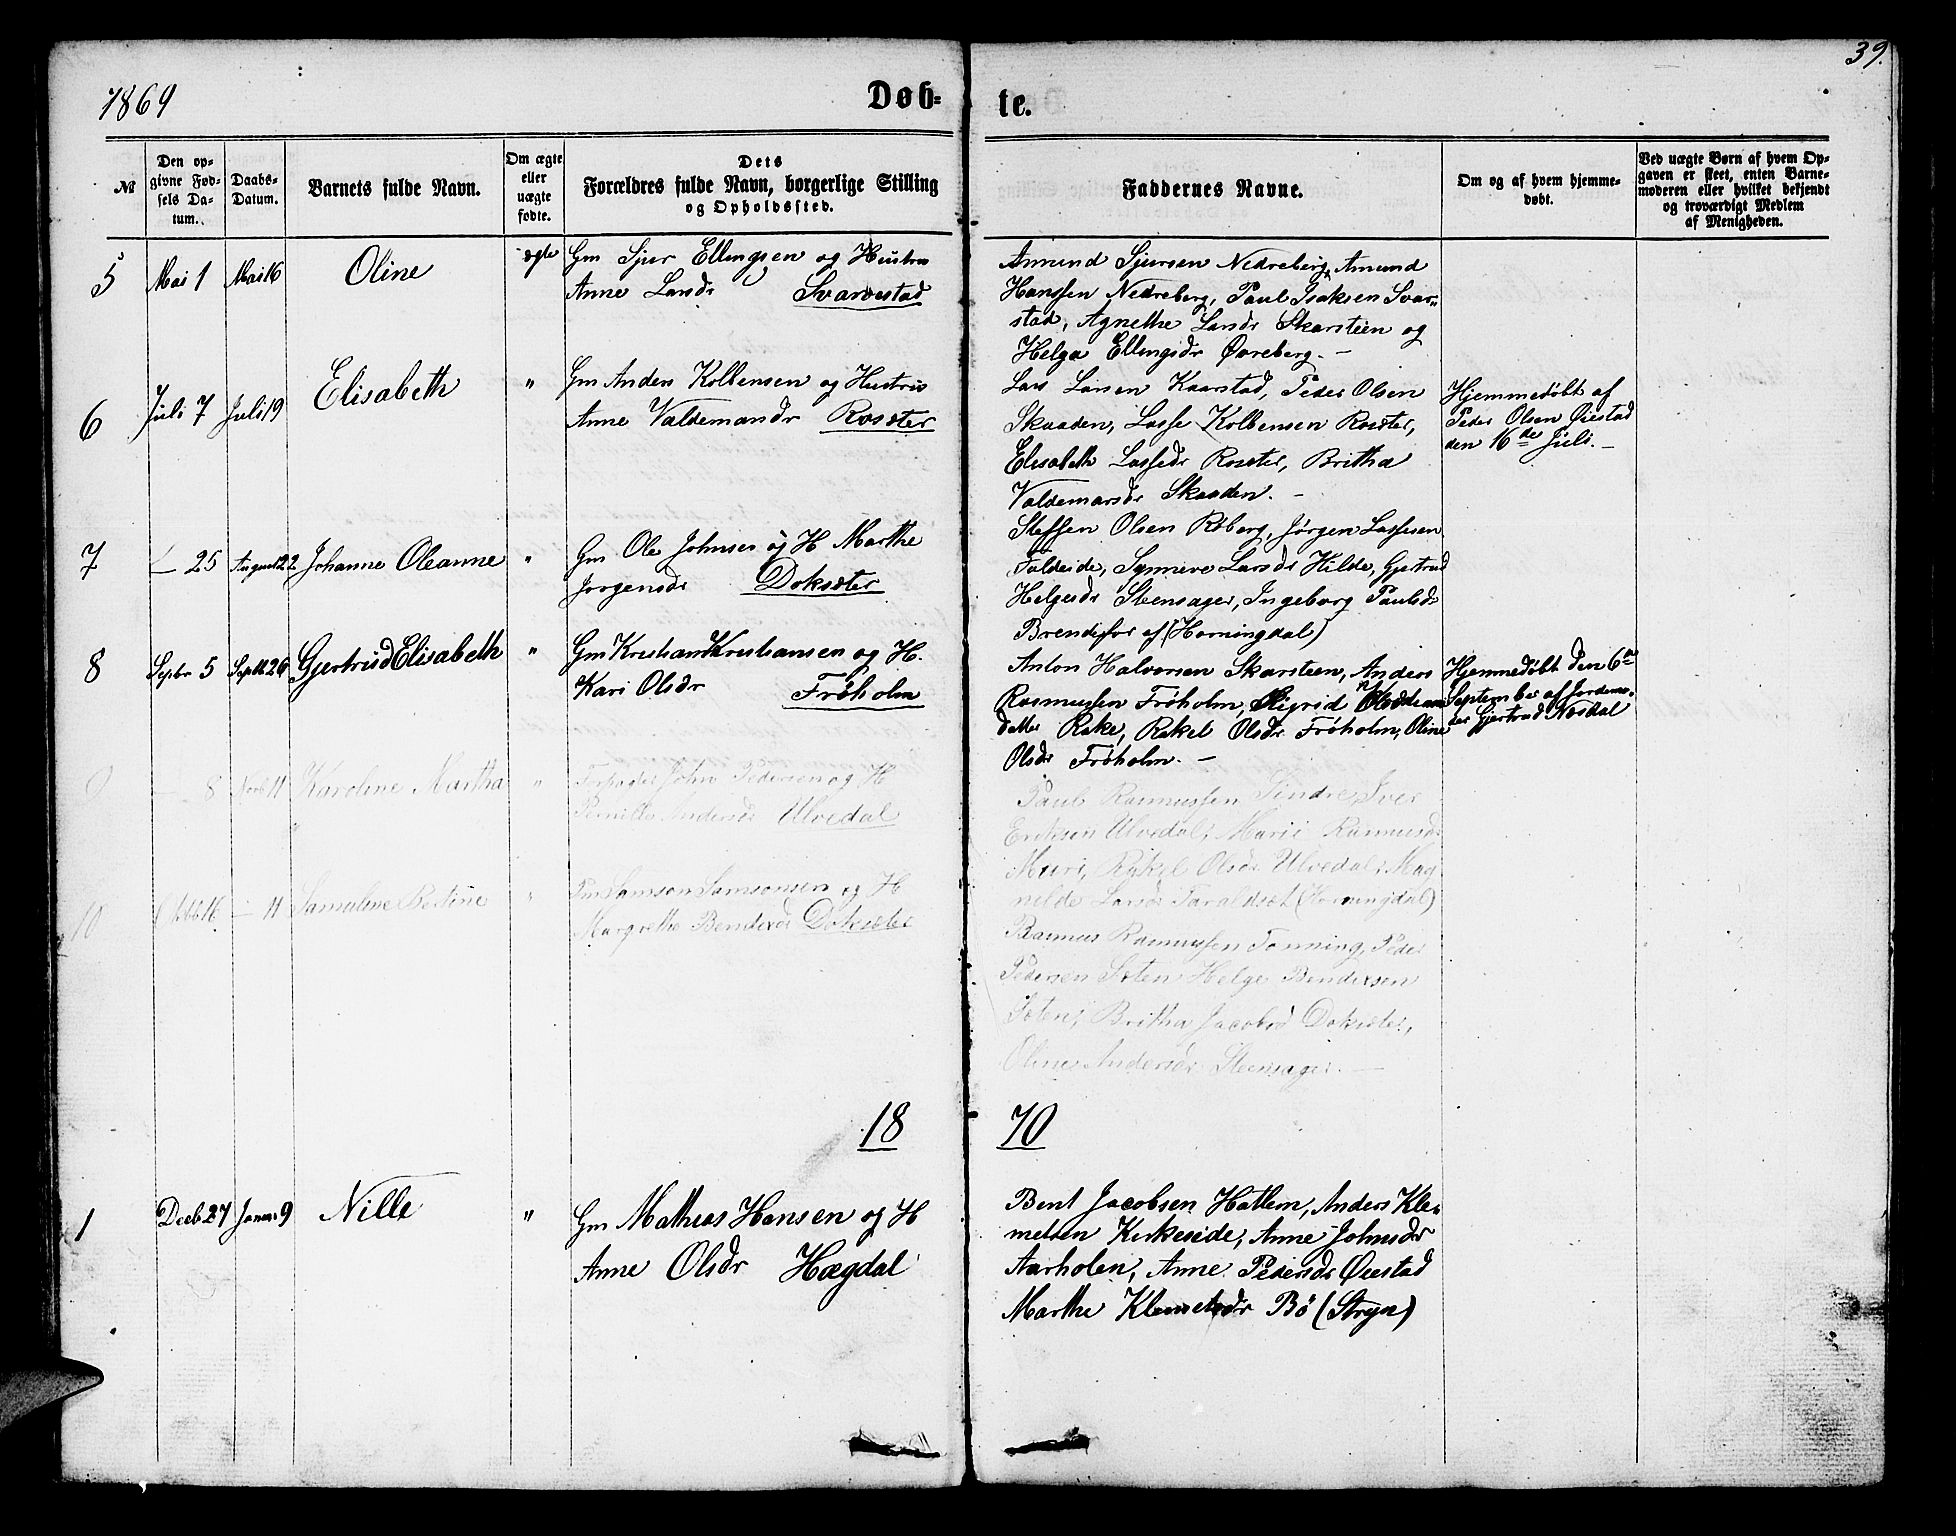 39.
1869
Døb=
te.
№
Den op=
givne Fød=
sels Da=
tum.
Daabs=
Datum.
Barnets fulde Navn.
Om ægte
eller
uægte
fødte.
Dets
Forældres fulde Navn, borgerlige Stilling
og Opholdssted.
Faddernes Navne.
Om og af hvem hjemme=
døbt.
Ved uægte Børn af hvem Op=
gaven er skeet, enten Barne=
moderen eller hvilket bekjendt
og troværdigt Medlem
af Menigheden.
5 Mai 1 Mai 16 Oline ægte Gm Sjur Ellingsen og Hustru
Anne Larsdr Svarvestad
Amund Sjursen Nedreberg, Amund
Hanssen Nedreberg, Paul Isaksen Svar=
stad, Agnethe Larsdr Skarsteen og
Helga Ellingsdr Øvreberg. —
6 Juli 7 Juli 19 Elisabeth " Gm Anders Kolbensen og Hustru
Anne Valdemarsdr Rosæter
Lars Larsen Kaarstad, Peder Olsen
Skaaden, Lasse Kolbensen Rosæter,
Elisabeth Lassedr Rosæter, Britha
Valdemarsdr Skaaden. —
Hjemmedøbt af
Peder Olsen Øiestad
den 16de Juli. —
7 — 25 August 22 Johanne Oleanne " Gm Ole Johnsen og H Marthe
Jørgensdr Doksæter
Steffen Olsen Røberg, Jørgen Lassesen
Faldeide, Synneve Larsdr Hilde, Gjertrud
Helgesdr Steensager, Ingeborg Paulsdr
Brendefor af (Horningdal)
8 Sepbr 5 Septb 26 Gjertrud Elisabeth " Gm Kristian Kristiansen og H.
Kari Olsdr Frøholm
Anton Halvorsen Skarsteen, Anders
Rasmussen Frøholm, Sigrid
datter Rake, Rakel Olsdr Frøholm, Oline
Olsdr Frøholm. —
Hjemmedøbt den 6te
September af Jordemo=
der Gjertrud Nosdal
9 — 8 Novb 11 Karoline Martha " John Pedersen og H
Pernille Andersdr Ulvedal
Paul Rasmussen Tindre, Iver
Eriksen Ulvedal, Marii Rasmusdr
Muri, Rakel Olsdr Ulvedal, Mag
nilde Larsdr Taraldset (Horningdal)
10 Oktbb 16 — 11 Samuline Bertine " Pm Samson Samsonsen og H
Margrethe Bendixdr Doksæter
Rasmus Rasmussen Tonning, Peder
Pedersen Sæten, Helge Bendixsen
Sæten, Britha Jacobsd Doksæter,
Oline Andersdr Steensager. —
18 70
1 Decb 27 Januar 9 Nille " Gm Mathias Hansen og H
Anne Olsdr Hægdal
Bent Jacobsen Hatlem, Anders Kle=
metsen Kirkeeide, Anne Johnsdr
Aarholen, Anne Pedersdr Øiestad
Marthe Klemetsdr Bø (Stryn)